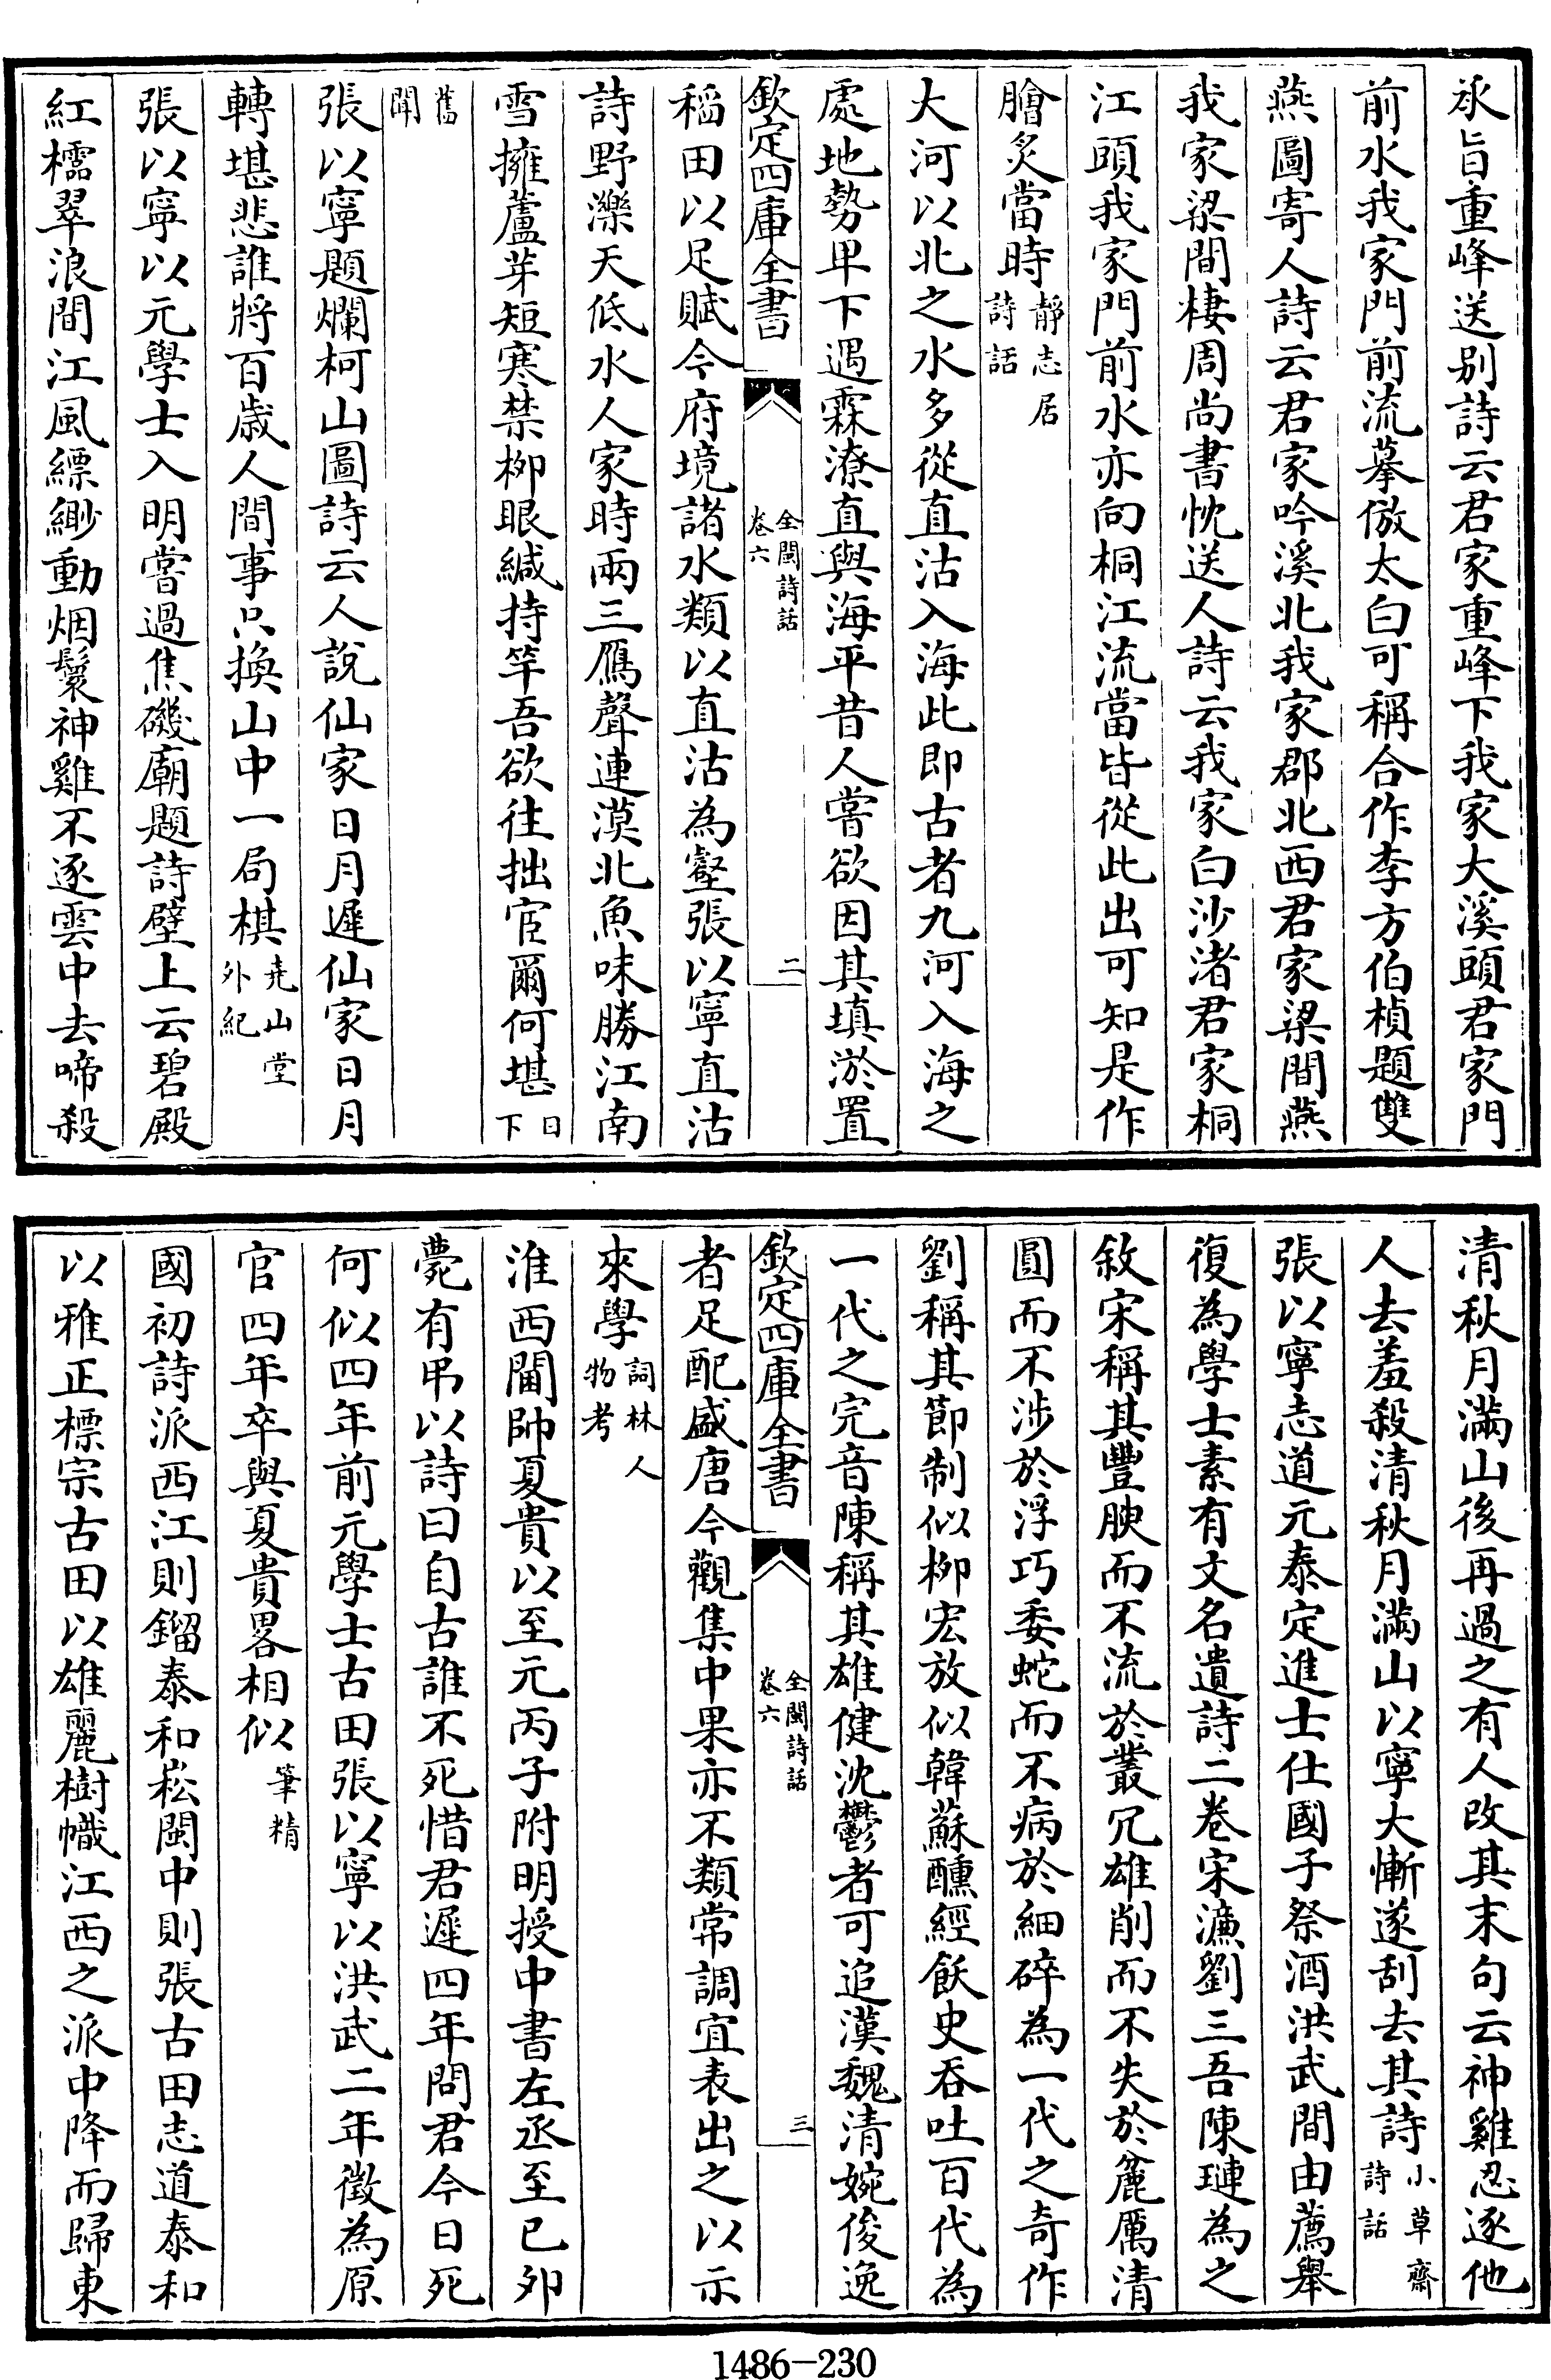 承旨重峰送别詩云君家重峰下我家大溪頭君家門
前水我家門前流摹倣太白可稱合作李方伯楨題雙
燕圖寄人詩云君家吟溪北我家郡北西君家梁間燕
我家梁間棲周尚書忱送人詩云我家白沙渚君家桐
江頭我家門前水亦向桐江流當皆從此出可知是作
膾炙當時靜志居詩話
大河以北之水多從直沽入海此即古者九河入海之
處地勢卑下遇霖潦直與海平昔人嘗欲因其填淤置
欽定四庫全書
全閩詩話
卷六
二
稻田以足賦今府境諸水類以直沽為壑張以寧直沽
詩野濼天低水人家時兩三鴈聲連漠北魚味勝江南
雪擁蘆芽短寒禁柳眼緘持竿吾欲往拙宦爾何堪日下
舊聞
張以寧題爛柯山圖詩云人說仙家日月遲仙家日月
轉堪悲誰將百歲人間事只換山中一局棋堯山堂外紀
張以寧以元學士入明嘗過焦磯廟題詩壁上云碧殿
紅櫺翠浪間江風縹緲動烟鬟神雞不逐雲中去啼殺
清秋月滿山後再過之有人改其末句云神雞忍逐他
人去羞殺清秋月滿山以寧大慚遂刮去其詩小草齋詩話
張以寧志道元泰定進士仕國子祭酒洪武間由薦舉
復為學士素有文名遺詩二卷宋濂劉三吾陳璉為之
敘宋稱其豐腴而不流於叢冗雄削而不失於麄厲清
圓而不涉於浮巧委蛇而不病於細碎為一代之奇作
劉稱其節制似柳宏放似韓蘇醺經飫史吞吐百代為
一代之完音陳稱其雄健沈鬱者可追漢魏清婉俊逸
欽定四庫全書
全閩詩話
卷六
三
者足配盛唐今觀集中果亦不類常調宜表出之以示
來學詞林人物考
淮西閫帥夏貴以至元丙子附明授中書左丞至已卯
薨有弔以詩曰自古誰不死惜君遲四年問君今日死
何似四年前元學士古田張以寧以洪武二年徵為原
官四年卒與夏貴畧相似筆精
國初詩派西江則鎦泰和崧閩中則張古田志道泰和
以雅正標宗古田以雄麗樹幟江西之派中降而歸東
1486-230